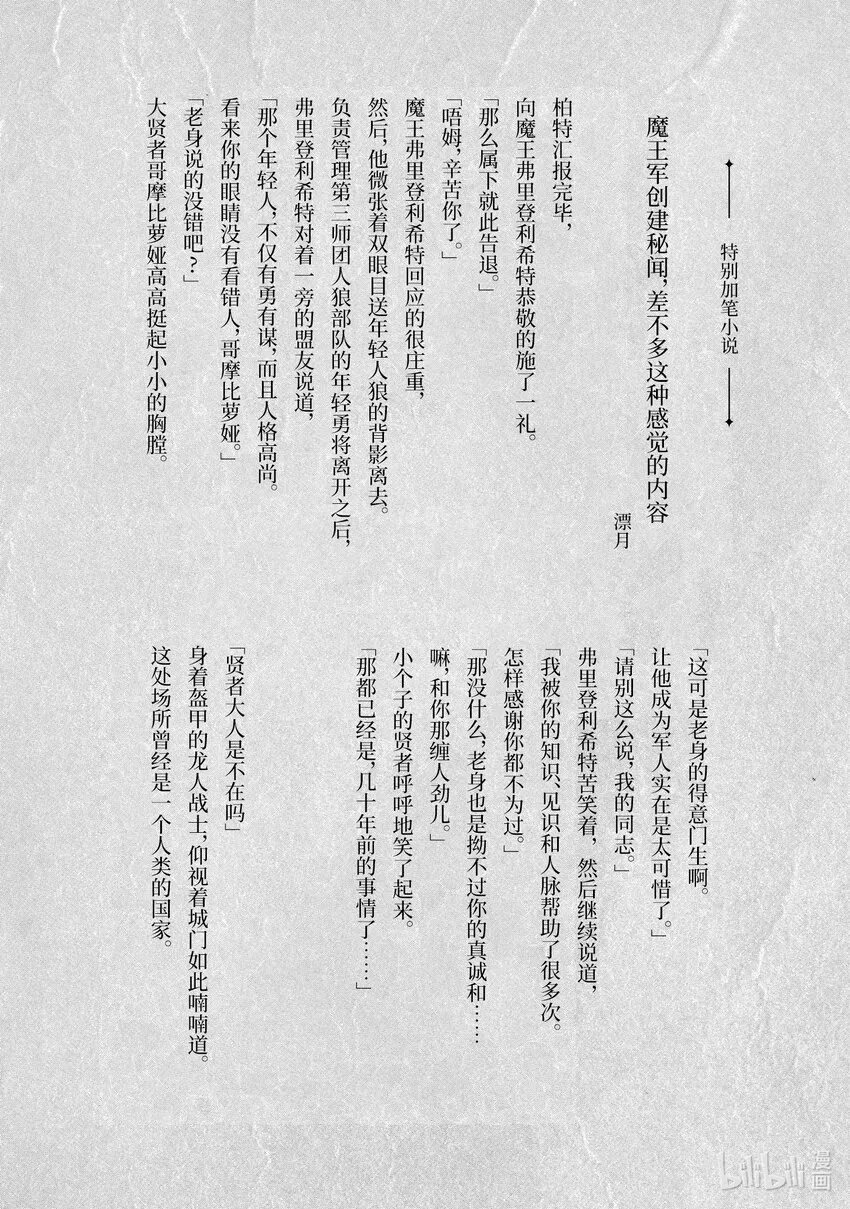 特别加笔小说
魔王军创建秘闻，差不多这种感觉的内容
漂月
柏特汇报完毕，
向魔王弗里登利希特恭敬的施了一礼。
「那么属下就此告退。」
「唔姆，辛苦你了。」
魔王弗里登利希特回应的很庄重，
然后，他微张着双眼目送年轻人狼的背影离去。
负责管理第三师团人狼部队的年轻勇将离开之后，
弗里登利希特对着一旁的盟友说道，
「那个年轻人，不仅有勇有谋，而且人格高尚。
看来你的眼睛没有看错人，哥摩比萝娅。」
「老身说的没错吧？」
大贤者哥摩比萝娅高高挺起小小的胸膛。
「这可是老身的得意门生啊。
让他成为军人实在是太可惜了。」
「请别这么说，我的同志。」
弗里登利希特苦笑着，然后继续说道，
「我被你的知识、见识和人脉帮助了很多次。
怎样感谢你都不为过。」
「那没什么，老身也是拗不过你的真诚和……
嘛，和你那缠人劲儿。」
小个子的贤者呼呼地笑了起来。
「那都已经是，几十年前的事情了……」
「贤者大人是不在吗」
身着盔甲的龙人战士，仰视着城门如此喃喃道。
这处场所曾经是一个人类的国家。
bilibili漫画